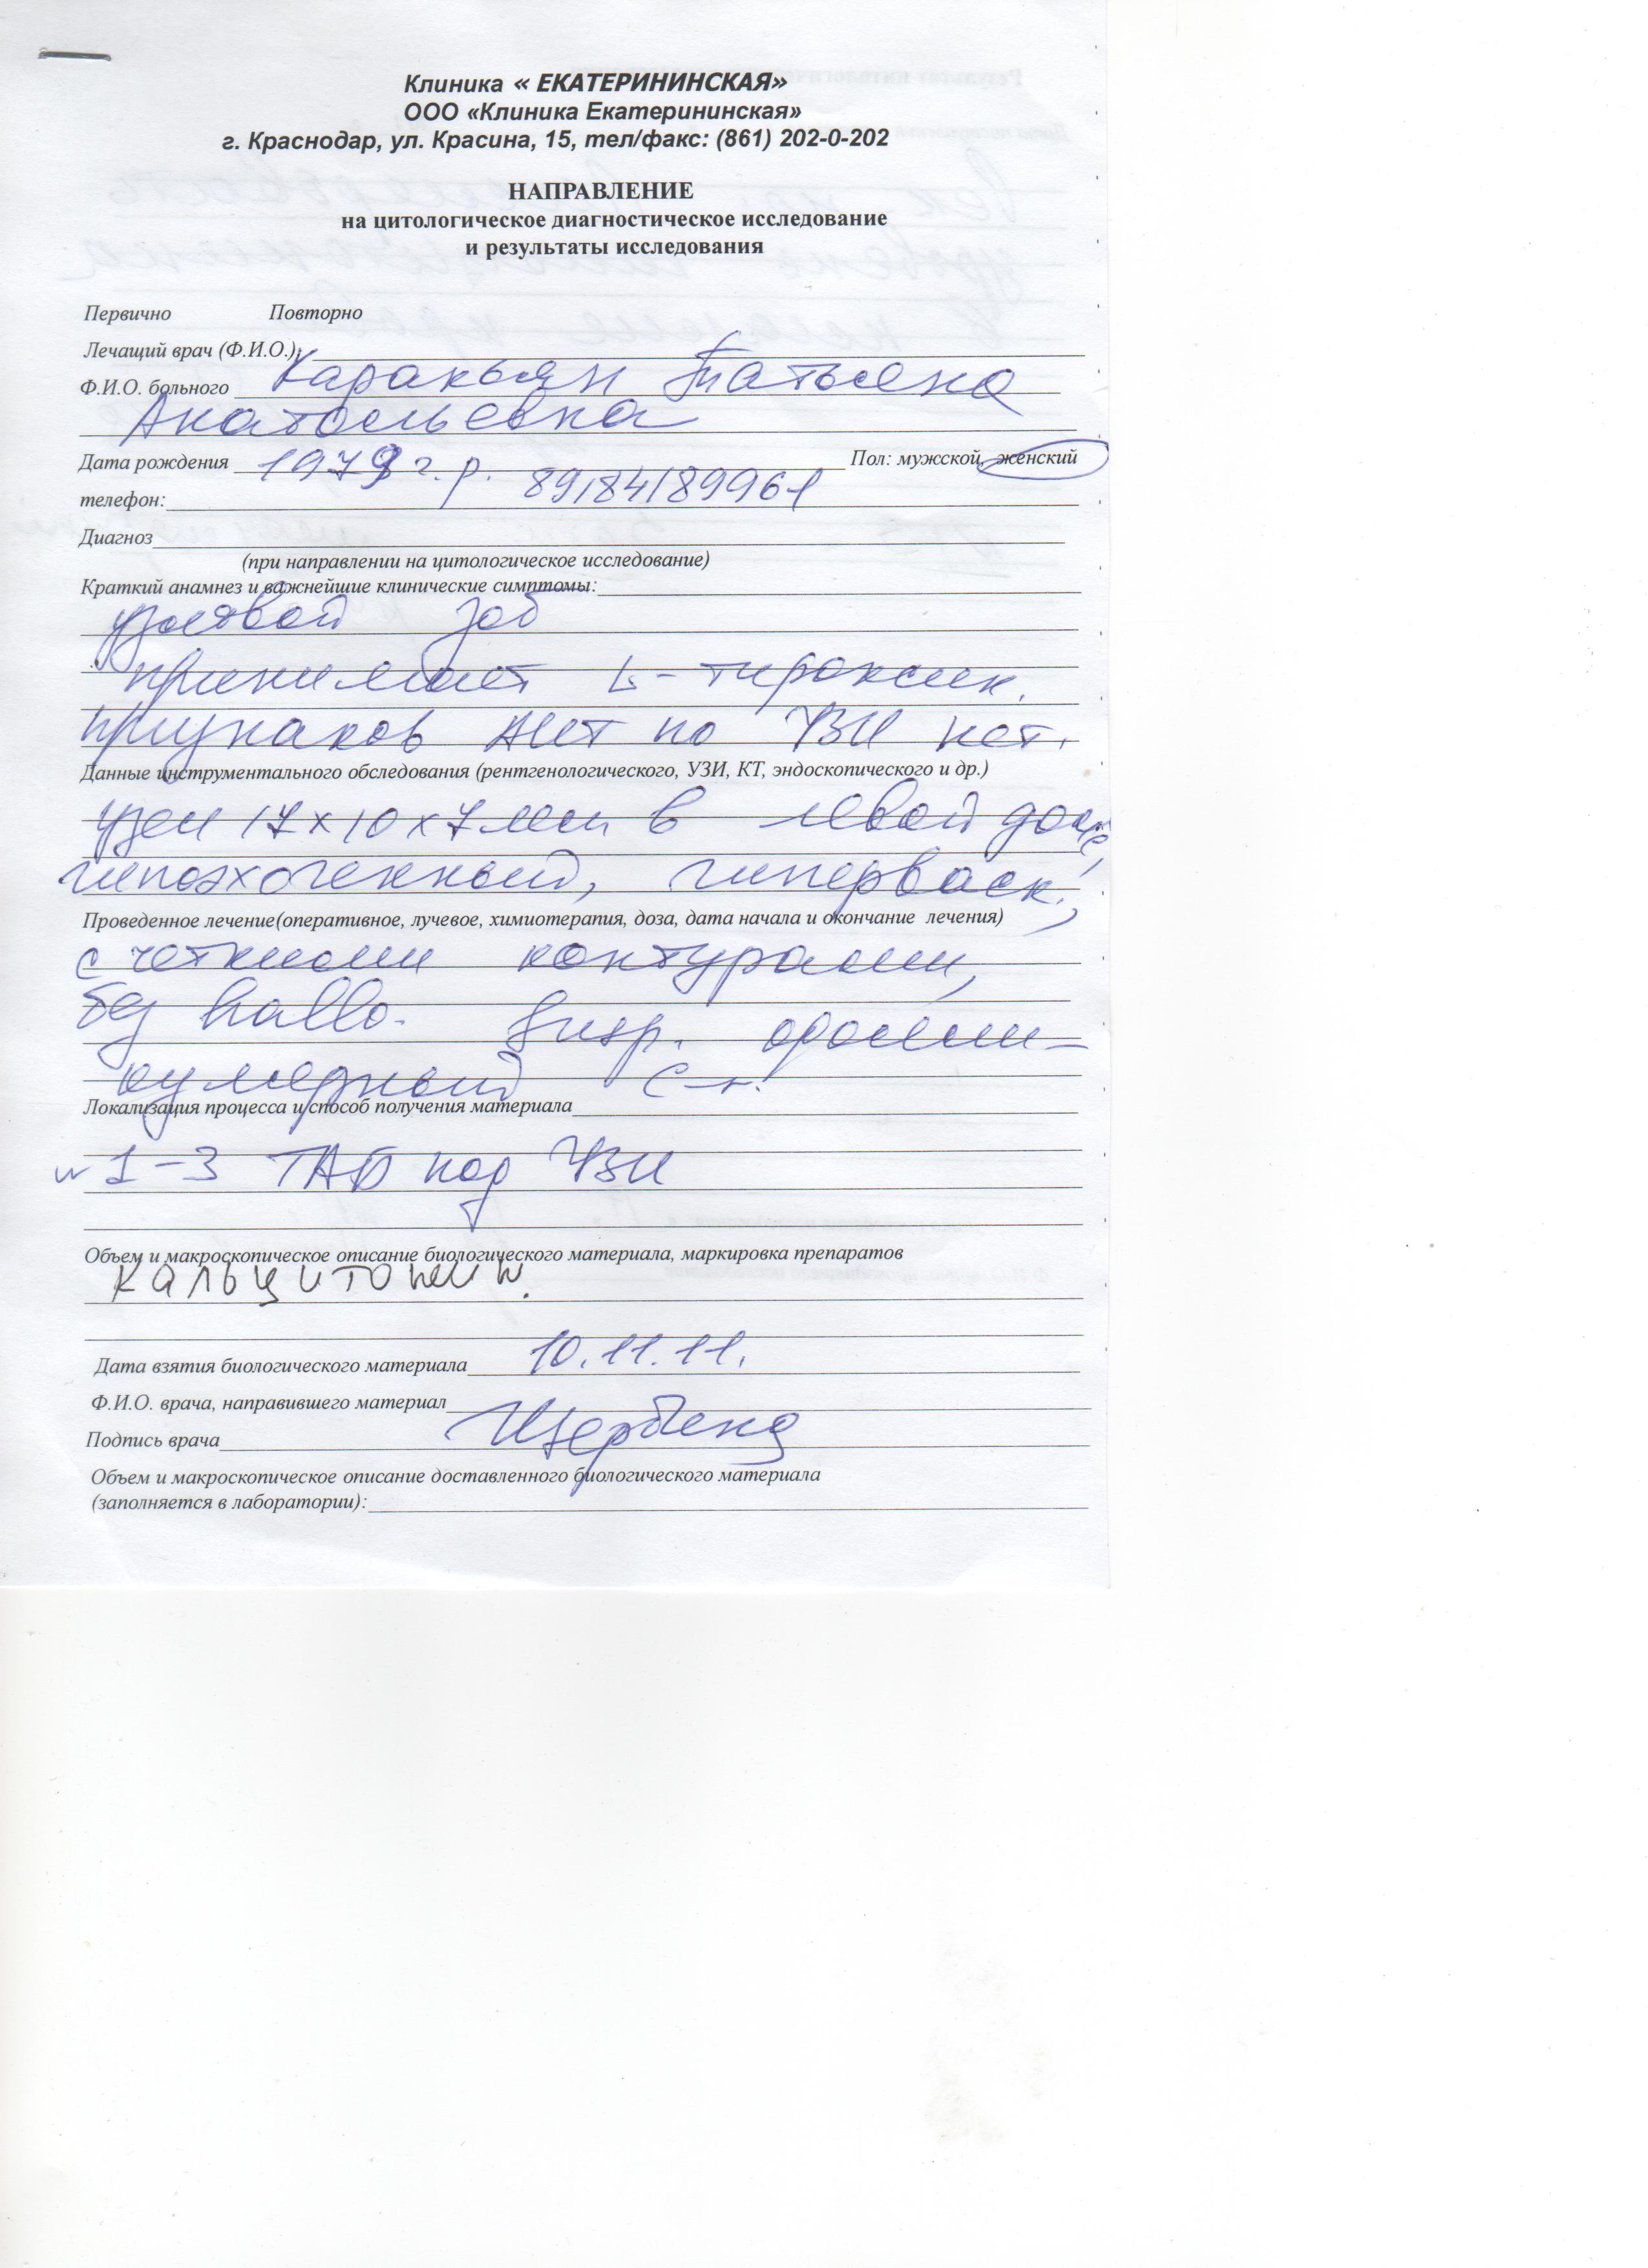 Клиника « ЕКАТЕРИНИНСКАЯ»
ООО «Клиника Екатерининская»
г. Краснодар, ул. Красина, 15, тел/факс: (861) 202-0-202
НАПРАВЛЕНИЕ
на цитологическое диагностическое исследование
и результаты исследования
Первично Повторно
Лечащий врач (Ф.И.О.):
Ф.И.О. больного Каракьян Татьяна
Анатольевна
Дата рождения г.р. Пол: мужской, женский
телефон: 89184189961
Диагноз
(при направлении на цитологическое исследование)
Краткий анамнез и важнейшие клинические симптомы:
узловой зоб
принимает L-тироксин.
признаков АИТ по УЗИ нет.
Данные инструментального обследования (рентгенологического, УЗИ, КТ, эндоскопического и др.)
узел 17х10х7мм в левой доле,
гипоэхогенный, гиперваск.,
Проведенное лечение(оперативное, лучевое, химиотерапия, доза, дата начала и окончание лечения)
с четкими контурами,
без hallo. Susp.
Локализация процесса и способ получения материала
1-3 ТАБ под УЗИ
Объем и макроскопическое описание биологического материала, маркировка препаратов
кальцитонин.
Дата взятия биологического материала 10.11.11.
Ф.И.О. врача, направившего материал
Подпись врача
Объем и макроскопическое описание доставленного биологического материала
(заполняется в лаборатории):